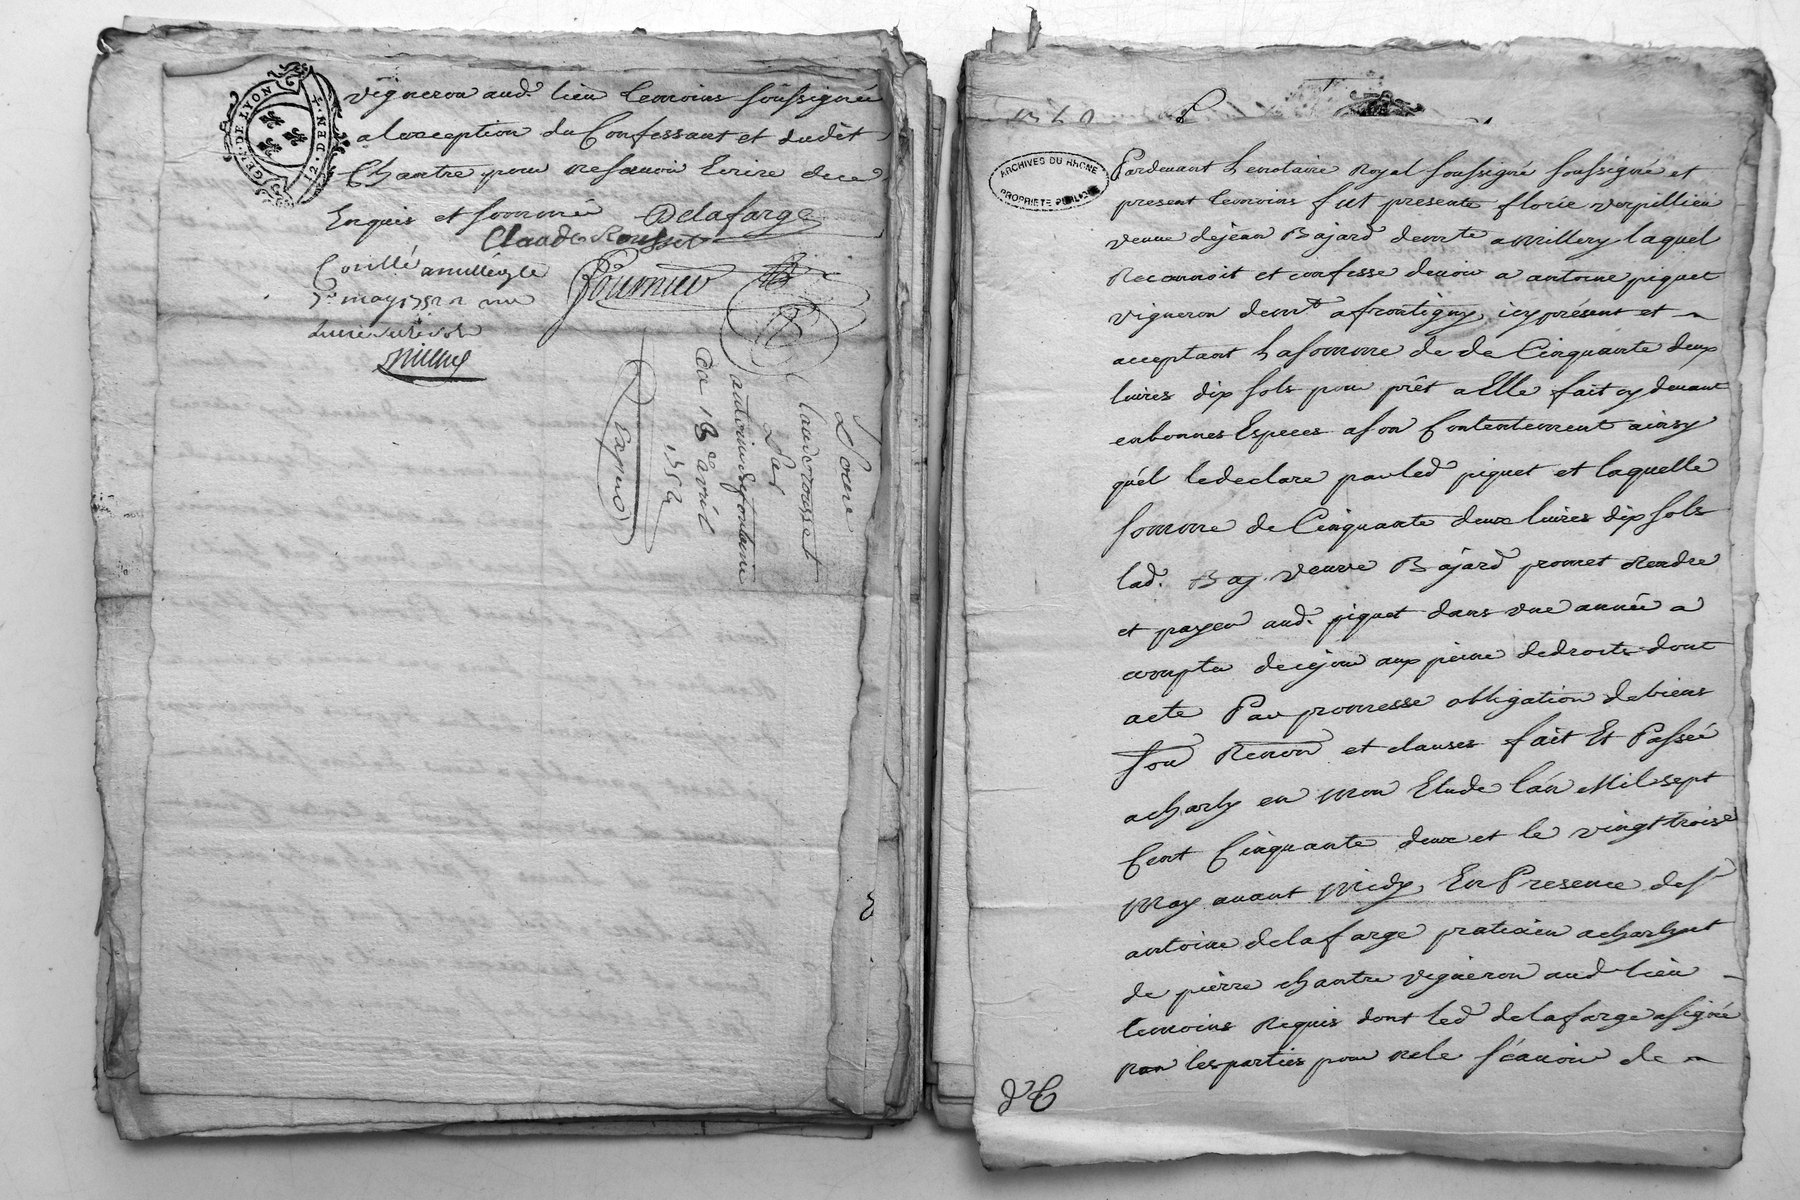 GEN. DE LYON
12. DEN. T.
vigneron aud. lieu temoins soussignés
a lexception du Confessant et dudit
Chantre pour ne scavoir Ecrire de ce
Enquis et sommé Delafarge
Claude Rousset
Conllé a millery le
may 1752 
Fournier
Louve
Claude rousset
Antoine defontaine
Du 18e avril
1752
ARCHIVES DU RHONE
PROPRIETE PUBLIQUE
Pardevant Le notaire Royal soussigné soussigné et
present temoins fut presente florie verpillieu
veuve dejean Bajard demte a millery laquel
Reconnoit et confesse devoir a antoine piquet
vigneron demt a frontigny, icy présent et
acceptant La somme de de Cinquante deux
livres dix sols pour prêt a Elle fait cy devant
en bonnes Especes a son Contentement ainsy
quel le declare par led piquet et laquelle
somme de Cinquante deux livres dix sols
lad. Baj veuve Bajard promet Rendre
et payer aud. piquet dans une année a
compter de ce jour aux peine de droits dont
acte Par promesse obligation de biens
sou Renon et clauses fait Et Passé
a charly en mon Etude l'an Mil sept
Cent Cinquante deux et le vingt trois
May avant Midy, En Presence de sr
antoine delafarge praticien a charly et
de pierre chantre vigneron aud lieu
temoins Requis dont led delafarge a signé
non les parties pour ne le scavoir de